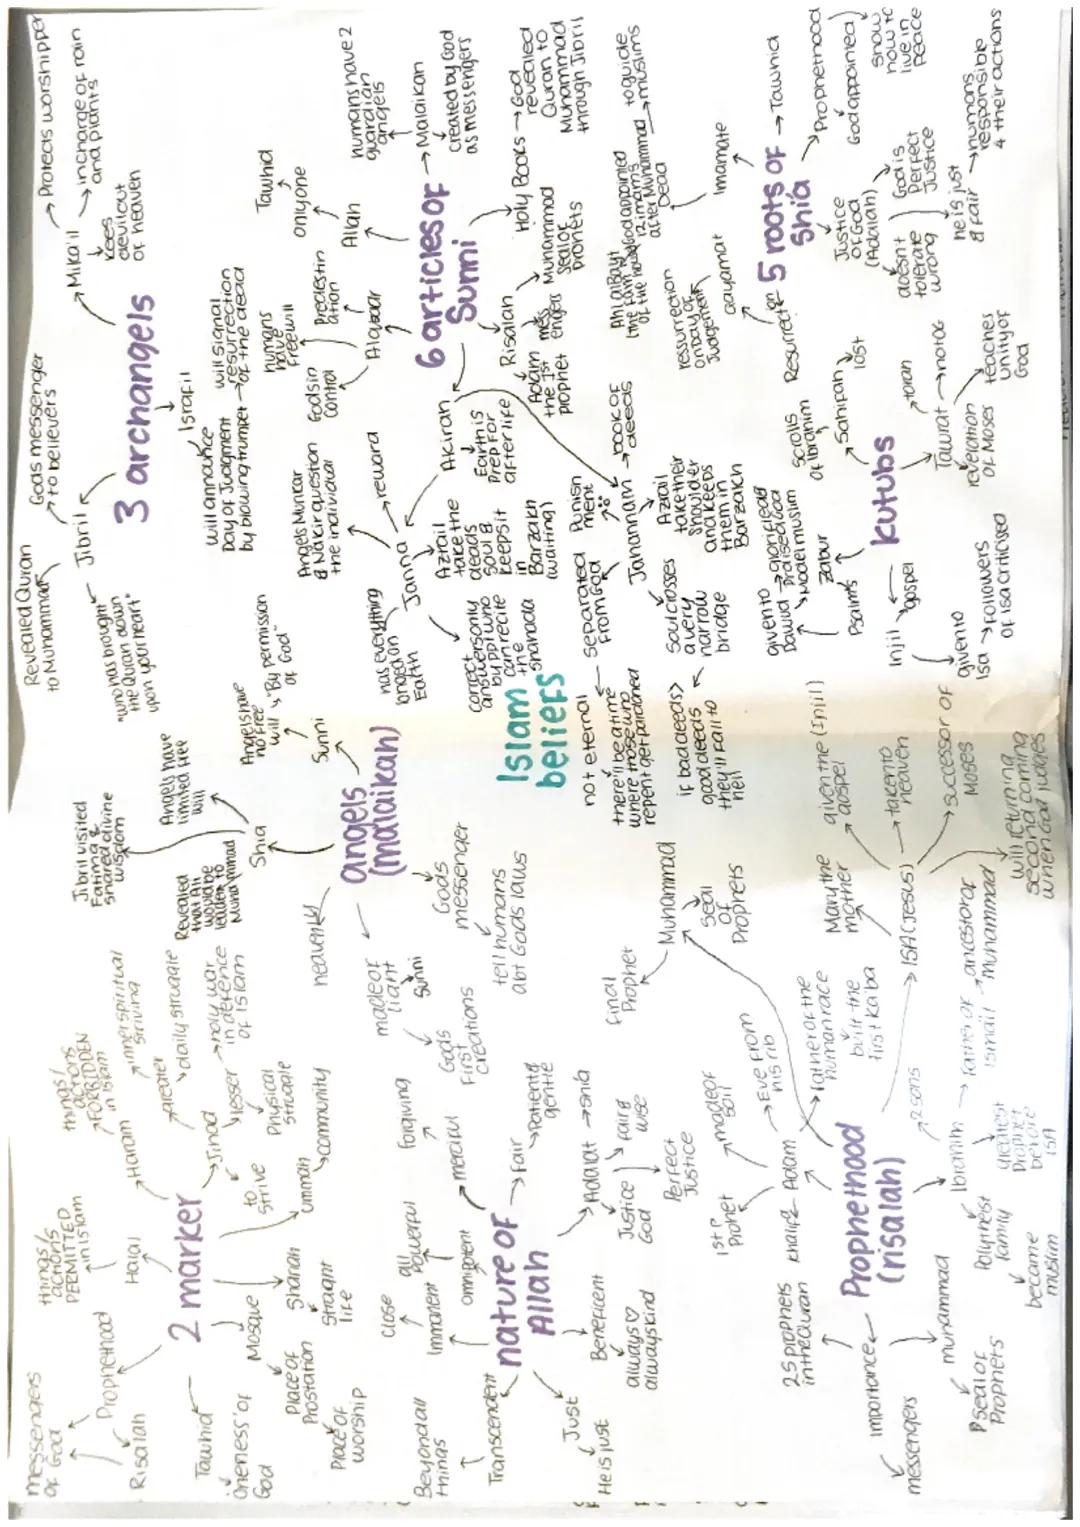 Islam
beliefs
2 marker
messengers
of God
Prophethood
Risalah
things/
actions
PERMITTED
in Islam
Halal
things/
actions
FORBIDDEN
in Islam
Haram
inner spiritual
striving
greater
daily struggle
Jihad
lesser
holy war
in defence
of Islam
Physical
struggle
to
strive
ummah
community
Shariah
Straight
life
Mosque
Place of
Prostation
Place of
worship
Tawhid
Oneness of
God
angels
(malaikah)
Shia
Jibril visited
Fatima &
shared divine
wisdom
Angels have
limited free
will
Revealed
that Ali
would be
leader to
Muhammad
Sunni
Angels have
no free
will
"By permission
of God"
heavenly
made of
light
Sunni
Gods
First
creations
Gods
messenger
tell humans
abt Gods laws
3 archangels
Jibril
Revealed Quran
to Muhammad
Gods messenger
to believers
"who has brought
the Quran down
upon your heart"
Mika'il
Protects worshipper
in charge of rain
and plants
kees
devil out
of heaven
Israfil
will announce
Day of Judgment
by blowing trumpet
will signal
resurrection
of the dead
6 articles of
Sunni
Allah
only one
Tawhid
Malaikah
humans have 2
guardian
angels
created by God
as messengers
Holy Books
God
revealed
Quran to
Muhammad
through Jibril
Risalah
Muhammad
seal of
prophets
mess
engers
Adam
the 1st
prophet
Alqadar
Predestin
ation
humans
have
freewill
God is in
control
Akirah
Earth is
prep for
afterlife
Janna
reward
Angels Munkar
& Nakir question
the individual
has everything
longed on
Earth
correct
answers only
by ppl who
can recite
the
shahada
Azrail
take the
deads
soul &
keeps it
in
Barzakh
(waiting)
Jahannam
book of
deeds
Punish
ment
separated
from God
not eternal
there'll be a time
where those who
repent get pardoned
Soul crosses
a very
narrow
bridge
if bad deeds>
good deeds
they'll fall to
hell
Azrail
take their
shoulder
and keeps
them in
Barzakh
5 roots of
Shia
Tawhid
Prophethood
God appointed
show
how to
live in
peace
Justice
of God
(Adalah)
God is
Perfect
Justice
doesn't
tolerate
wrong
he is just
& fair
humans
responsible
4 their actions
Imamate
God appointed
12 imams
after Muhammad
Dead
to guide
muslims
Ahl al Bayt
(the family
of the house)
Resurrection
qayamat
resurrection
on Day of
Judgement
kutubs
Sahipah
scrolls
of Ibrahim
lost
Tawrat
torah
motog
revelation
of Moses
teaches
unity of
God
zabur
Psalms
given to
Dawud
glorified &
praised God
Model muslim
Injil
gospel
given to
Isa
Followers
of Isa criticised
nature of
Allah
Immanent
close
omnipotent
all
Powerful
merciful
Forgiving
Fair
Patient &
gentle
Adalat
Shia
Justice
God
fair &
wise
Perfect
Justice
Beneficent
always ♡
always kind
Just
He is just
Transcendent
Beyond all
things
Prophethood
(risalah)
Importance
25 prophets
in the Quran
messengers
muhammad
seal of
Prophets
Adam
khalifa
1st
Prophet
made of
soil
Eve from
his rib
Father of the
human race
built the
first kaba
Muhammad
final
Prophet
Seal
of
Prophets
Ibrahim
2 sons
Father of
Ismail
ancestor of
muhammad
greatest
Prophet
before
ISA
Polytheist
family
became
muslim
ISA (Jesus)
Mary the
mother
given the (Injil)
gospel
taken to
heaven
successor of
Moses
will returning
second coming
when God judges